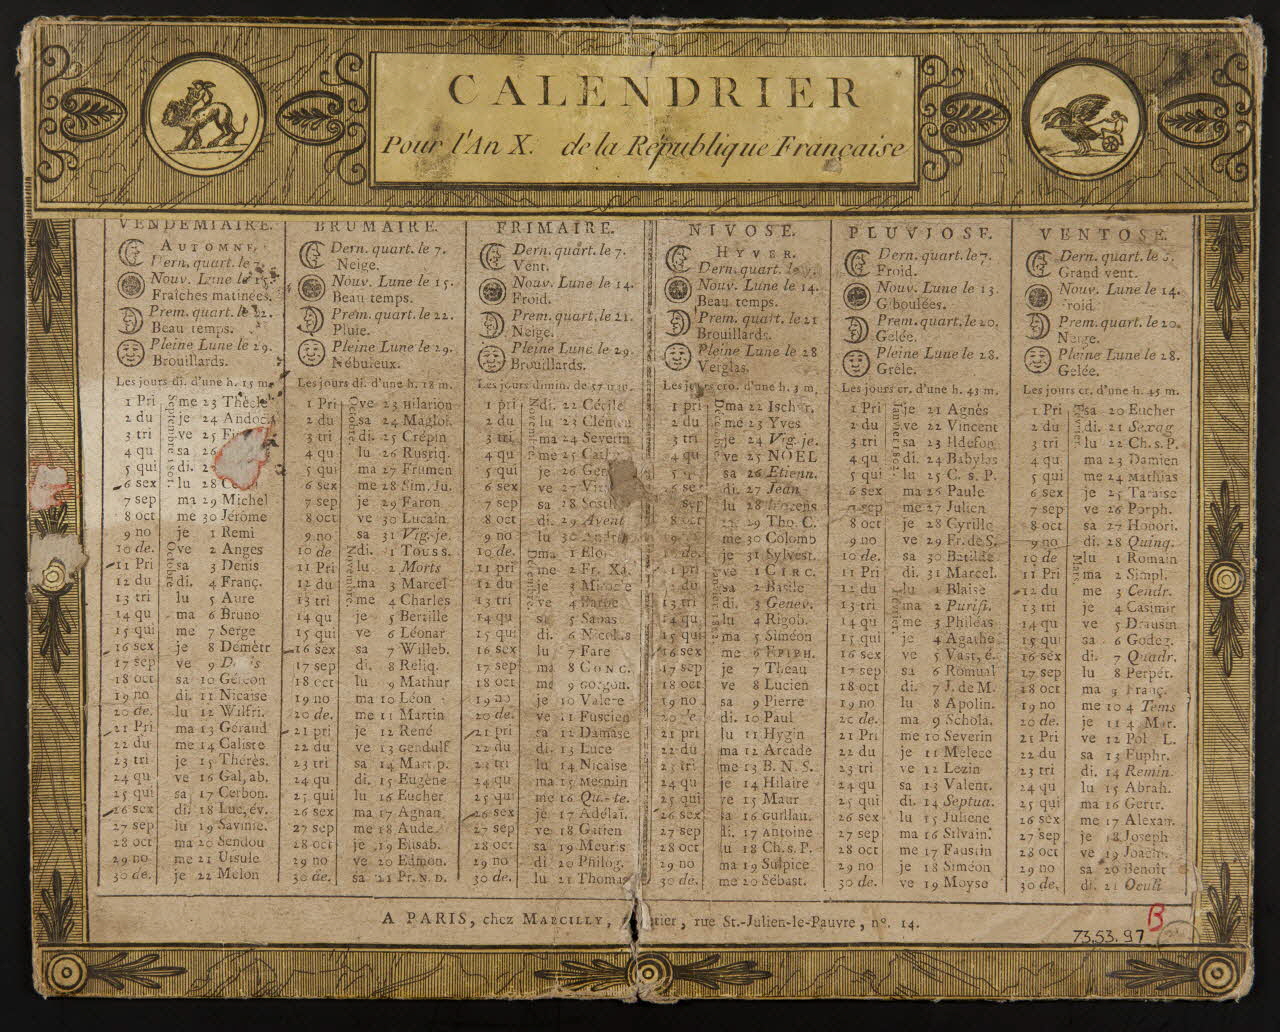 CALENDRIER
Pour l'An X. de la République Française
VENDEMIAIRE.
AUTOMNE.
Dern. quart. le 7.
Nouv. Lune le 15.
Fraîches matinées.
Prem. quart. le 22.
Beau temps.
Pleine Lune le 29.
Brouillards.
Les jours di. d'une h. 15 m.
Septembre 1801.
1 Pri me 23 Thècle
2 du je 24 Andoc.
3 tri ve 25
4 qu sa 26
5 qui di.
6 sex lu 28
7 sep ma 29 Michel
8 oct me 30 Jérôme
Octobre.
9 no je 1 Remi
10 de. ve 2 Anges
11 Pri sa 3 Denis
12 du di. 4 Franç.
13 tri lu 5 Aure
14 qu ma 6 Bruno
15 qui me 7 Serge
16 sex je 8 Demètr
17 sep ve 9
18 oct sa 10 Géréon
19 no di. 11 Nicaise
20 de. lu 12 Wilfri.
21 Pri ma 13 Géraud
22 du me 14 Caliste
23 tri je 15 Thérès.
24 qu ve 16 Gal, ab.
25 qui sa 17 Cerbon.
26 sex di. 18 Luc, év.
27 sep lu 19 Savinie.
28 oct ma 20 Sendou
29 no me 21 Ursule
30 de. je 22 Melon
BRUMAIRE.
Dern. quart. le 7.
Neige.
Nouv. Lune le 15.
Beau temps.
Prem. quart. le 22.
Pluie.
Pleine Lune le 29.
Nébuleux.
Les jours di. d'une h. 18 m.
Octobre.
1 Pri ve 23 Hilarion
2 du sa 24 Magloi.
3 tri di. 25 Crépin
4 qu lu 26 Rustiq.
5 qui ma 27 Frumen
6 sex me 28 Sim. Ju.
7 sep je 29 Faron
8 oct ve 30 Lucain.
9 no sa 31 Vig.-je.
Novembre.
10 de di. 1 Touss.
11 Pri lu 2 Morts
12 du ma 3 Marcel
13 tri me 4 Charles
14 qu je 5 Bertille
15 qui ve 6 Léonar
16 sex sa 7 Willeb.
17 sep di. 8 Reliq.
18 oct lu 9 Mathur
19 no ma 10 Léon
20 de. me 11 Martin
21 pri je 12 René
22 du ve 13 Gendulf
23 tri sa 14 Mart. p.
24 qu di. 15 Eugène
25 qui lu 16 Eucher
26 sex ma 17 Aghan
27 sep me 18 Aude
28 oct je 19 Elisab.
29 no ve 20 Edmon.
30 de. sa 21 Pr. N. D.
FRIMAIRE.
Dern. quart. le 7.
Vent.
Nouv. Lune le 14.
Froid.
Prem. quart. le 21.
Neige.
Pleine Lune le 29.
Brouillards.
Les jours dimin. de 37 m.
Novembre.
1 pri di. 22 Cécile
2 du lu 23 Clémen
3 tri ma 24 Severin
4 qu me 25
5 qui je 26
6 sex ve 27
7 sep sa 28
8 oct di. 29 Avent
9 no lu 30 André
Décembre.
10 de. ma 1 Eloi
11 pri me 2 Fr. Xa.
12 du je 3
13 tri ve 4 Barbe
14 qu sa 5 Sabas
15 qui di. 6 Nicolas
16 sex lu 7 Fare
17 sep ma 8 CONC.
18 oct me 9 Gorgon.
19 no je 10 Valere
20 de. ve 11 Fuscien
21 pri sa 12 Damase
22 du di. 13 Luce
23 tri lu 14 Nicaise
24 qu ma 15 Mesmin
25 qui me 16 Qu.-te.
26 sex je 17 Adelaï.
27 sep ve 18 Gatien
28 oct sa 19 Meuris
29 no di 20 Philog.
30 de. lu 21 Thomas
NIVOSE.
HYVER.
Dern. quart. le 7.
Nouv. Lune le 14.
Beau temps.
Prem. quart. le 21
Brouillards.
Pleine Lune le 28
Verglas.
Les jours cro. d'une h. 3 m.
Décembre.
1 pri ma 22 Ischyr.
2 du me 23 Yves
3 tri je 24 Vig. je.
4 qu ve 25 NOEL
5 qui sa 26 Etienn.
6 sex di. 27 Jean
7 sep lu 28 Innocens
8 oct 29 Tho. C.
9 no me 30 Colomb
10 de. je 31 Sylvest.
Janvier 1802.
11 pri ve 1 CIRC.
12 du sa 2 Basile
13 tri di. 3 Genev.
14 qu lu 4 Rigob.
15 qui ma 5 Siméon
16 sex me 6 EPIPH.
17 sep je 7 Theau
18 oct ve 8 Lucien
19 no sa 9 Pierre
20 de di. 10 Paul
21 pri lu 11 Hygin
22 du ma 12 Arcade
23 tri me 13 B. N. S.
24 qu je 14 Hilaire
25 qui ve 15 Maur
26 sex sa 16 Guillau.
27 sep di. 17 Antoine
28 oct lu 18 Ch. s. P.
29 no ma 19 Sulpice
30 de. me 20 Sébast.
PLUVIOSE.
Dern. quart. le 7.
Froid.
Nouv. Lune le 13.
Giboulées.
Prem. quart. le 20.
Gelée.
Pleine Lune le 28.
Grêle.
Les jours cr. d'une h. 43 m.
Janvier 1802.
1 Pri je 21 Agnès
2 du ve 22 Vincent
3 tri sa 23 Ildefon
4 qu di. 24 Babylas
5 qui lu 25 C. s. P.
6 sex ma 26 Paule
7 sep me 27 Julien
8 oct je 28 Cyrille
9 no ve 29 Fr. de S.
10 de. sa 30 Batilde
11 Pri di. 31 Marcel.
Février.
12 du lu 1 Blaise
13 tri ma 2 Purifi.
14 qu me 3 Philéas
15 qui je 4 Agathe
16 sex ve 5 Vast, é.
17 sep sa 6 Romual
18 oct di. 7 J. de M.
19 no lu 8 Apolin.
20 de. ma 9 Schola.
21 Pri me 10 Severin
22 du je 11 Melece
23 tri ve 12 Lezin
24 qu sa 13 Valent.
25 qui di. 14 Septua.
26 sex lu 15 Juliene
27 sep ma 16 Silvain.
28 oct me 17 Faustin
29 no je 18 Siméon
30 de. ve 19 Moyse
VENTOSE.
Dern. quart. le
Grand vent.
Nouv. Lune le 14.
Froid.
Prem. quart. le 20.
Neige.
Pleine Lune le 28.
Gelée.
Les jours cr. d'une h. 45 m.
Février.
1 Pri sa 20 Eucher
2 du di. 21 Sexag
3 tri lu 22 Ch. s. P.
4 qu ma 23 Damien
5 qui me 24 Mathias
6 sex je 25 Taraise
7 sep ve 26 Porph.
8 oct sa 27 Honori.
9 no di. 28 Quinq.
Mars.
10 de lu 1 Romain
11 Pri ma 2 Simpl.
12 du me 3 Cendr.
13 tri je 4 Casimir
14 qu ve 5 Drausin
15 qui sa 6 Godeg.
16 sex di. 7 Quadr.
17 sep lu 8 Perpét.
18 oct ma 9 Franç.
19 no me 10 4 Tems
20 de. je 11 4 Mar.
21 Pri ve 12 Pol L.
22 du sa 13 Euphr.
23 tri di. 14 Remin.
24 qu lu 15 Abrah.
25 qui ma 16 Gertr.
26 sex me 17 Alexan.
27 sep je 18 Joseph
28 oct ve 19 Joach.
29 no sa 20 Benoît
30 de. di. 21 Oculi
A PARIS, chez MARCILLY, rue St.-Julien-le-Pauvre, n°. 14.
73.53.97 B